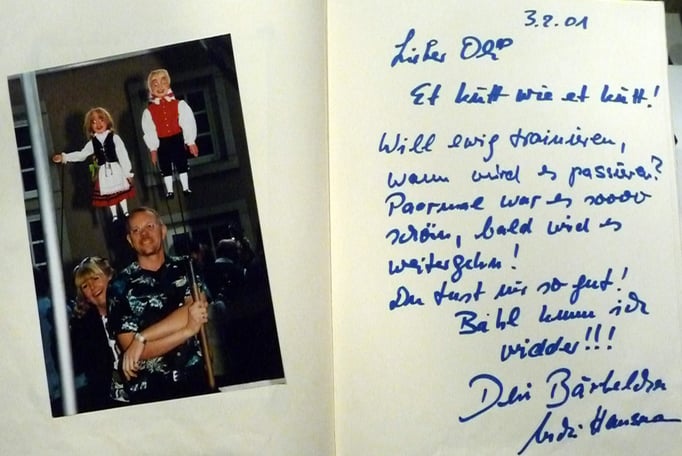 3.2.01
Lieber Olli
Et kütt wie et kütt!
Will ewig trainieren,
wann wird es passieren?
Paarmal war es soooo
schön, bald wird es
weitergehn!
Du tust mir so gut!
Bähl kumm ich
widder!!!
Dein Bärbelchen